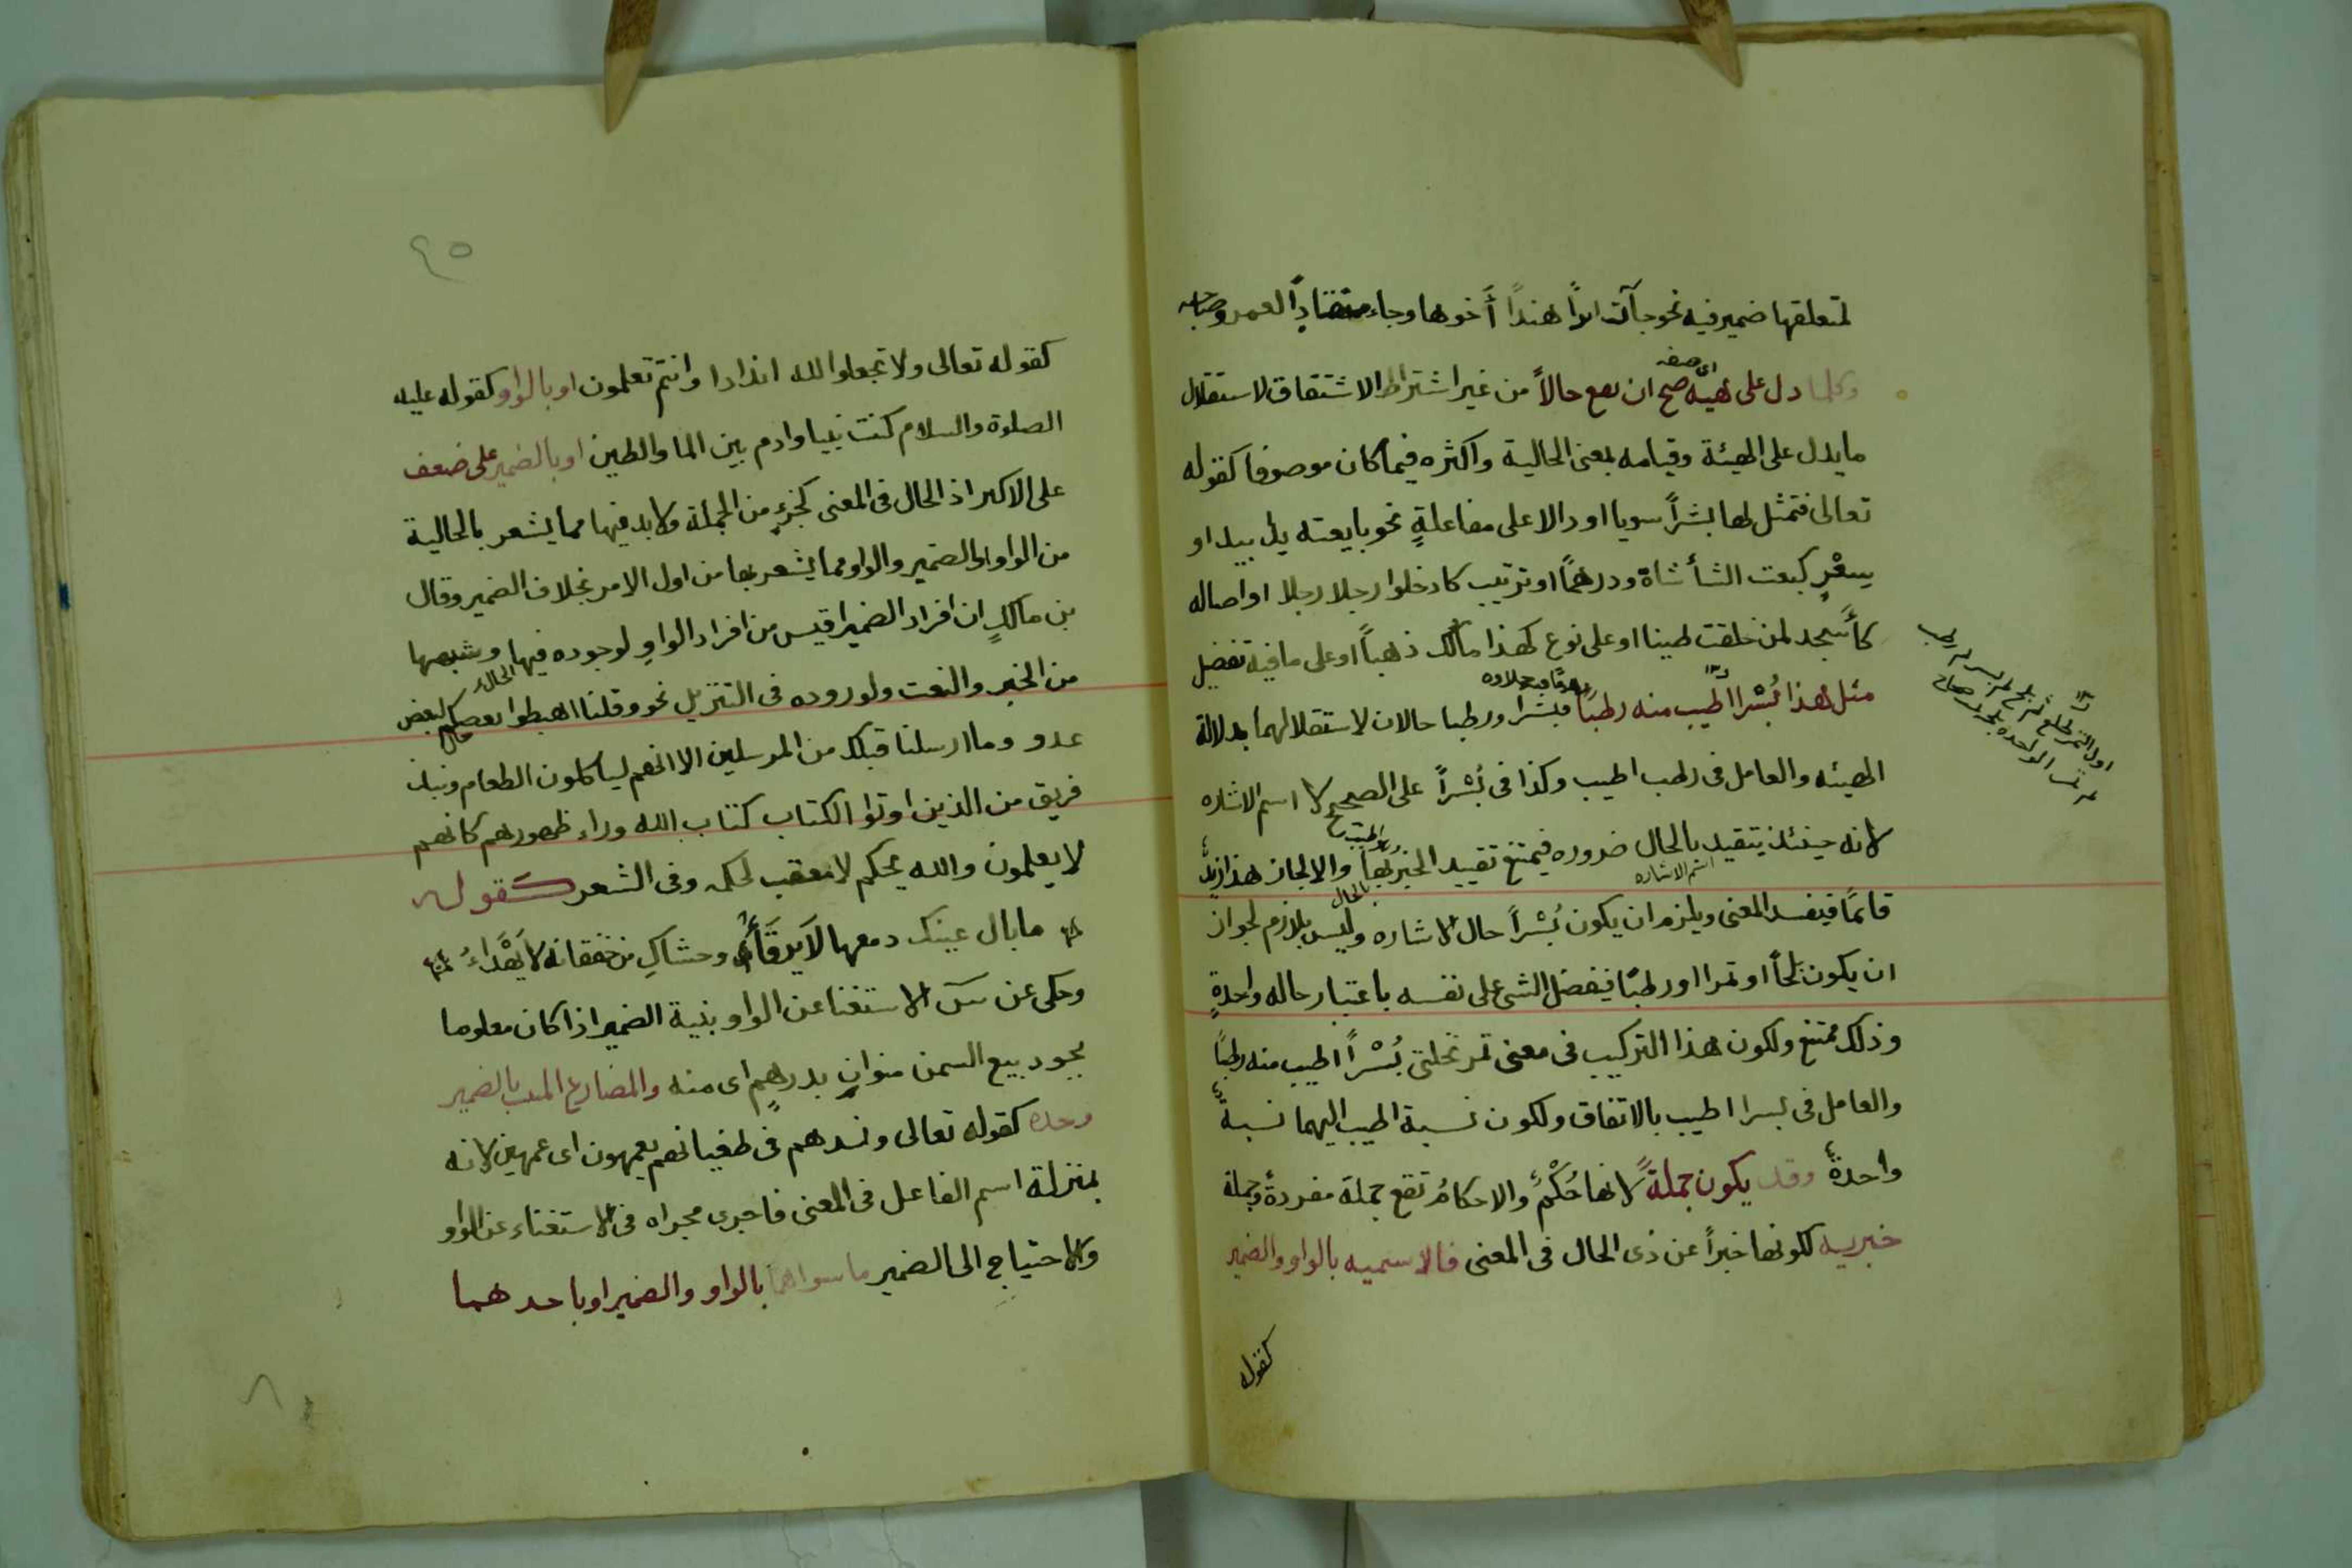 لمتعلقها ضمير فيه نحو جآئت هنداً أخوها وجاء العمرو
وكلما دل على هيئه صح ان يقع حالاً من غير اشتراط الاشتقاق لاستقلال
اى صفه
ما يدل على الهيئة وقيامه بمعنى الحالية واكثره فيما كان موصوفا كقوله
تعالى فتمثل لها بشراً سويا او دالا على مفاعلةٍ نحو بايعته يدا بيد او
بسعْرٍ كبعت الشأ شاة ودرهماً او ترتيب كادخلوا رجلا رجلا او اصاله
كأسجد لمن خلقت طينا او على نوع كهذا مالك ذهباً او على ما فيه تفضيل
مثل هذا بُسْرا اطيب منه رطباً فبسْرا ورطبا حالان لاستقلالهما بدلالة
الهيئه والعامل فى رطب اطيب وكذا فى بُسْراً على الصحيح لا اسم الاشاره
لانه حينئذ يتقيد بالحال ضروره فيمتنع تقييد الخبر بها والا لجاز هذا زيد
اسم الاشاره
بالحال
قائماً فيفسد المعنى ويلزم ان يكون بُسْراً حال الاشاره وليس بلازم لجواز
ان يكون بلحاً او تمرا او رطبًا فيفضل الشئ على نفسه باعتبار حاله واحدةٍ
وذلك ممتنع ولكون هذا التركيب فى معنى تمر نخلتى بُسْراً اطيب منه رطباً
والعامل فى بسرا اطيب بالاتفاق ولكون نسبة اطيب اليهما نسبةً
واحدةً وقد يكون جملةً لانها حُكْمٌ والاحكامُ تقع جملة مفردةً وجملة
خبريه لكونها خبراً عن ذى الحال فى المعنى فالاسميه بالواو والضمير
كقوله
اول التمر طلع ثم بلح ثم بسر ثم رطب
٤٥
كقوله تعالى ولا تجعلوا لله اندادا وانتم تعلمون او بالواو كقوله عليه
الصلوة والسلام كنت نبيا وادم بين الما والطين او بالضمير على ضعف
على الاكثر اذ الحال فى المعنى كجزءٍ من الجملة ولا بد فيها مما يشعر بالحالية
من الواو والضمير والواو مما يشعر بها من اول الامر بخلاف الضمير وقال
بن مالكٍ ان افراد الضمير اقيس من افراد الواو لوجوده فيها وشبهها
من الخبر والنعت ولوروده فى التنزيل نحو وقلنا اهبطوا بعضكم لبعض
الحال
عدو وما ارسلنا قبلك من المرسلين الا انهم لياكلون الطعام ونبذ
فريق من الذين اوتوا الكتاب كتاب الله وراء ظهورهم كانهم
لا يعلمون والله يحكم لا معقب لحكمه وفى الشعر كقوله
ما بال عينك دمعها لا يرقأُ وحشاكِ من خفقانه لا يهْدَاءُ
وحكى عن س الاستغنا عن الواو بنية الضمير اذا كان معلوما
يجود بيع السمن منوانِ بدرهمٍ اى منه والمضارع المثبت بالضمير
وحده كقوله تعالى ونذرهم فى طغيانهم يعمهون اى عمهين لانه
بمنزلة اسم الفاعل فى المعنى فاجرى مجراه فى الاستغناء عن الواو
والاحتياج الى الضمير ما سواهما بالواو والضمير او باحدهما